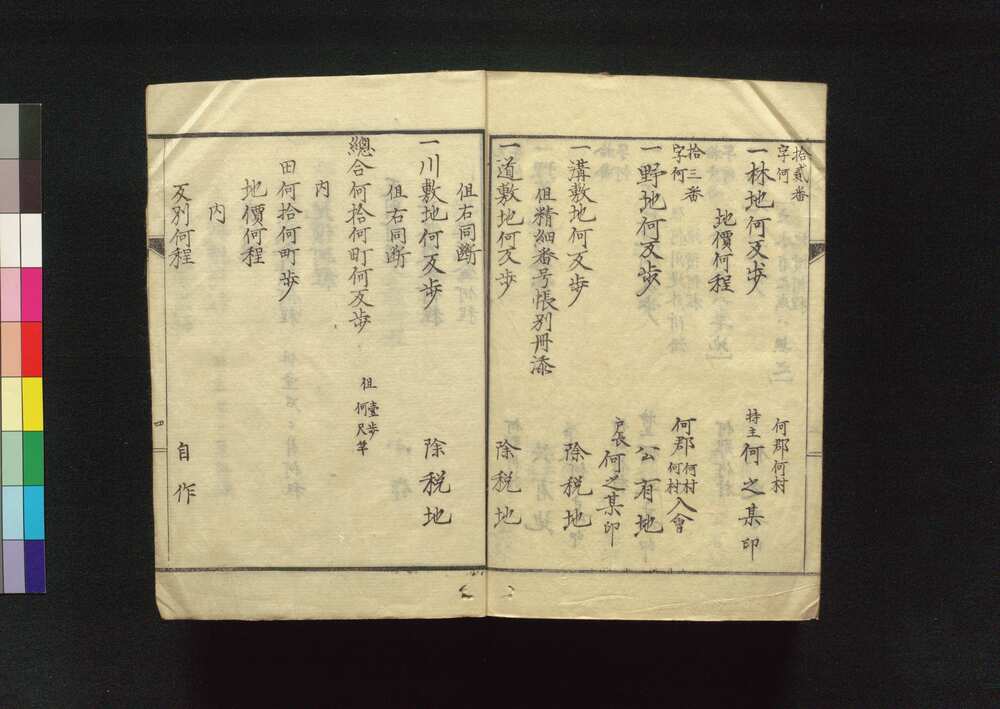 拾貳番
字何
一林地何反歩
何郡何村
持主何之某印
地價何程
拾三番
字何
一野地何反歩
何郡何村何村入會
公有地
戸長何之某印
一溝敷地何反歩
除税地
但精細番号帳別冊添
一道敷地何反歩
除税地
但右同断
一川敷地何反歩
除税地
但右同断
總合何拾何町何反歩
但壹歩何尺竿
内
田何拾何町歩
地價何程
内
反別何程
自作
四